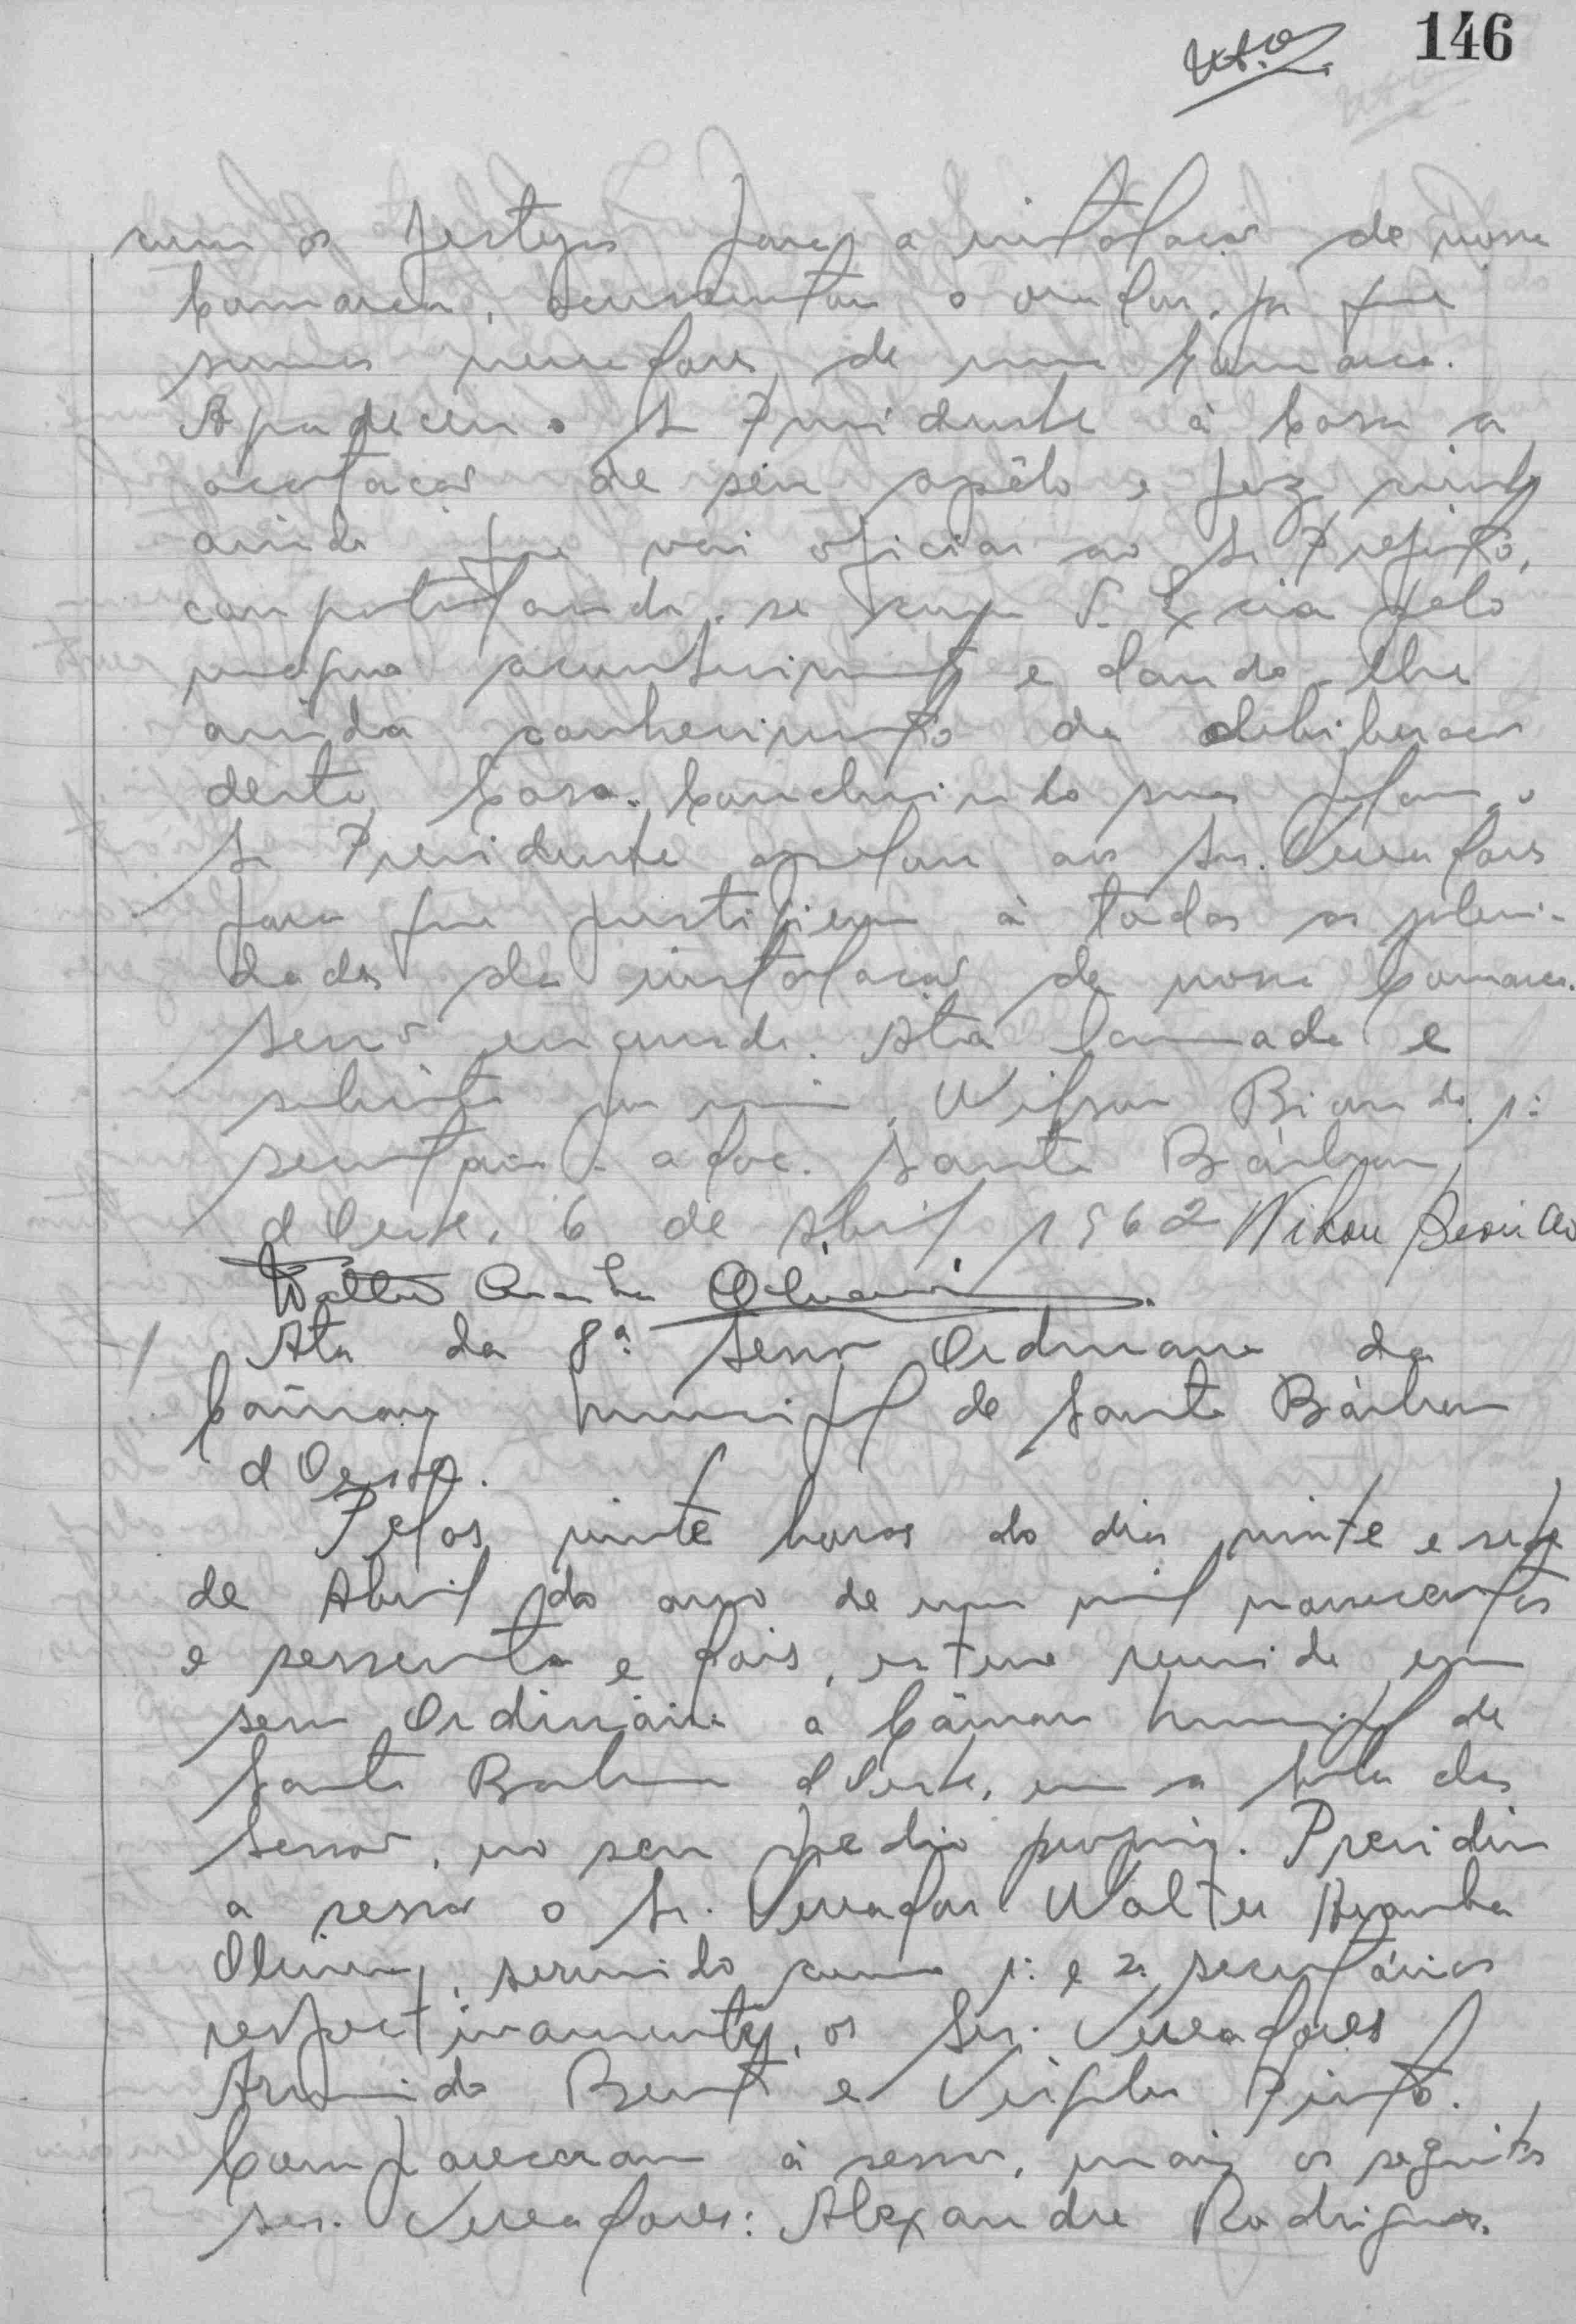 146
com os festejos para a instalação de nossa
Comarca, acrescentou o orador, já que
somos vereadores de uma Comarca.
Agradeceu o Sr Presidente à Casa a
aceitação de seu apêlo e fez ciente
ainda que vai oficiar ao Sr Prefeito,
congratulando-se com S. Excia pelo
magno acontecimento e dando-lhe
ainda conhecimento da deliberação
desta Casa. Concluindo sua fala, o
Sr Presidente apelou aos Srs. Vereadores
para que prestigiem à todas as soleni-
dades da instalação de nossa Comarca.
Sessão encerrada. Ata lavrada e
subscrita por mim, Wilson Bionde 1º
secretário ad hoc. Santa Bárbara
d'Oeste, 6 de Abril 1962
Walter Aranha Oliveira
Ata da 8ª Sessão Ordinaria da
Câmara Municipal de Santa Bárbara
d'Oeste.
Pelas vinte horas do dia vinte e sete
de Abril do ano de um mil novecentos
e sessenta e dois, esteve reunida em
sessão Ordinária a Câmara Municipal de
Santa Barbara d'Oeste, em a sala das
Sessões, no seu predio proprio. Presidiu
a sessão o Sr. Vereador Walter Aranha
Oliveira, servindo como 1º e 2º secretários
respectivamente, os Srs. Vereadores
Bent e Virgilio Pinto.
Compareceram à sessão, mais os seguintes
srs. Vereadores: Alexandre Rodrigues.